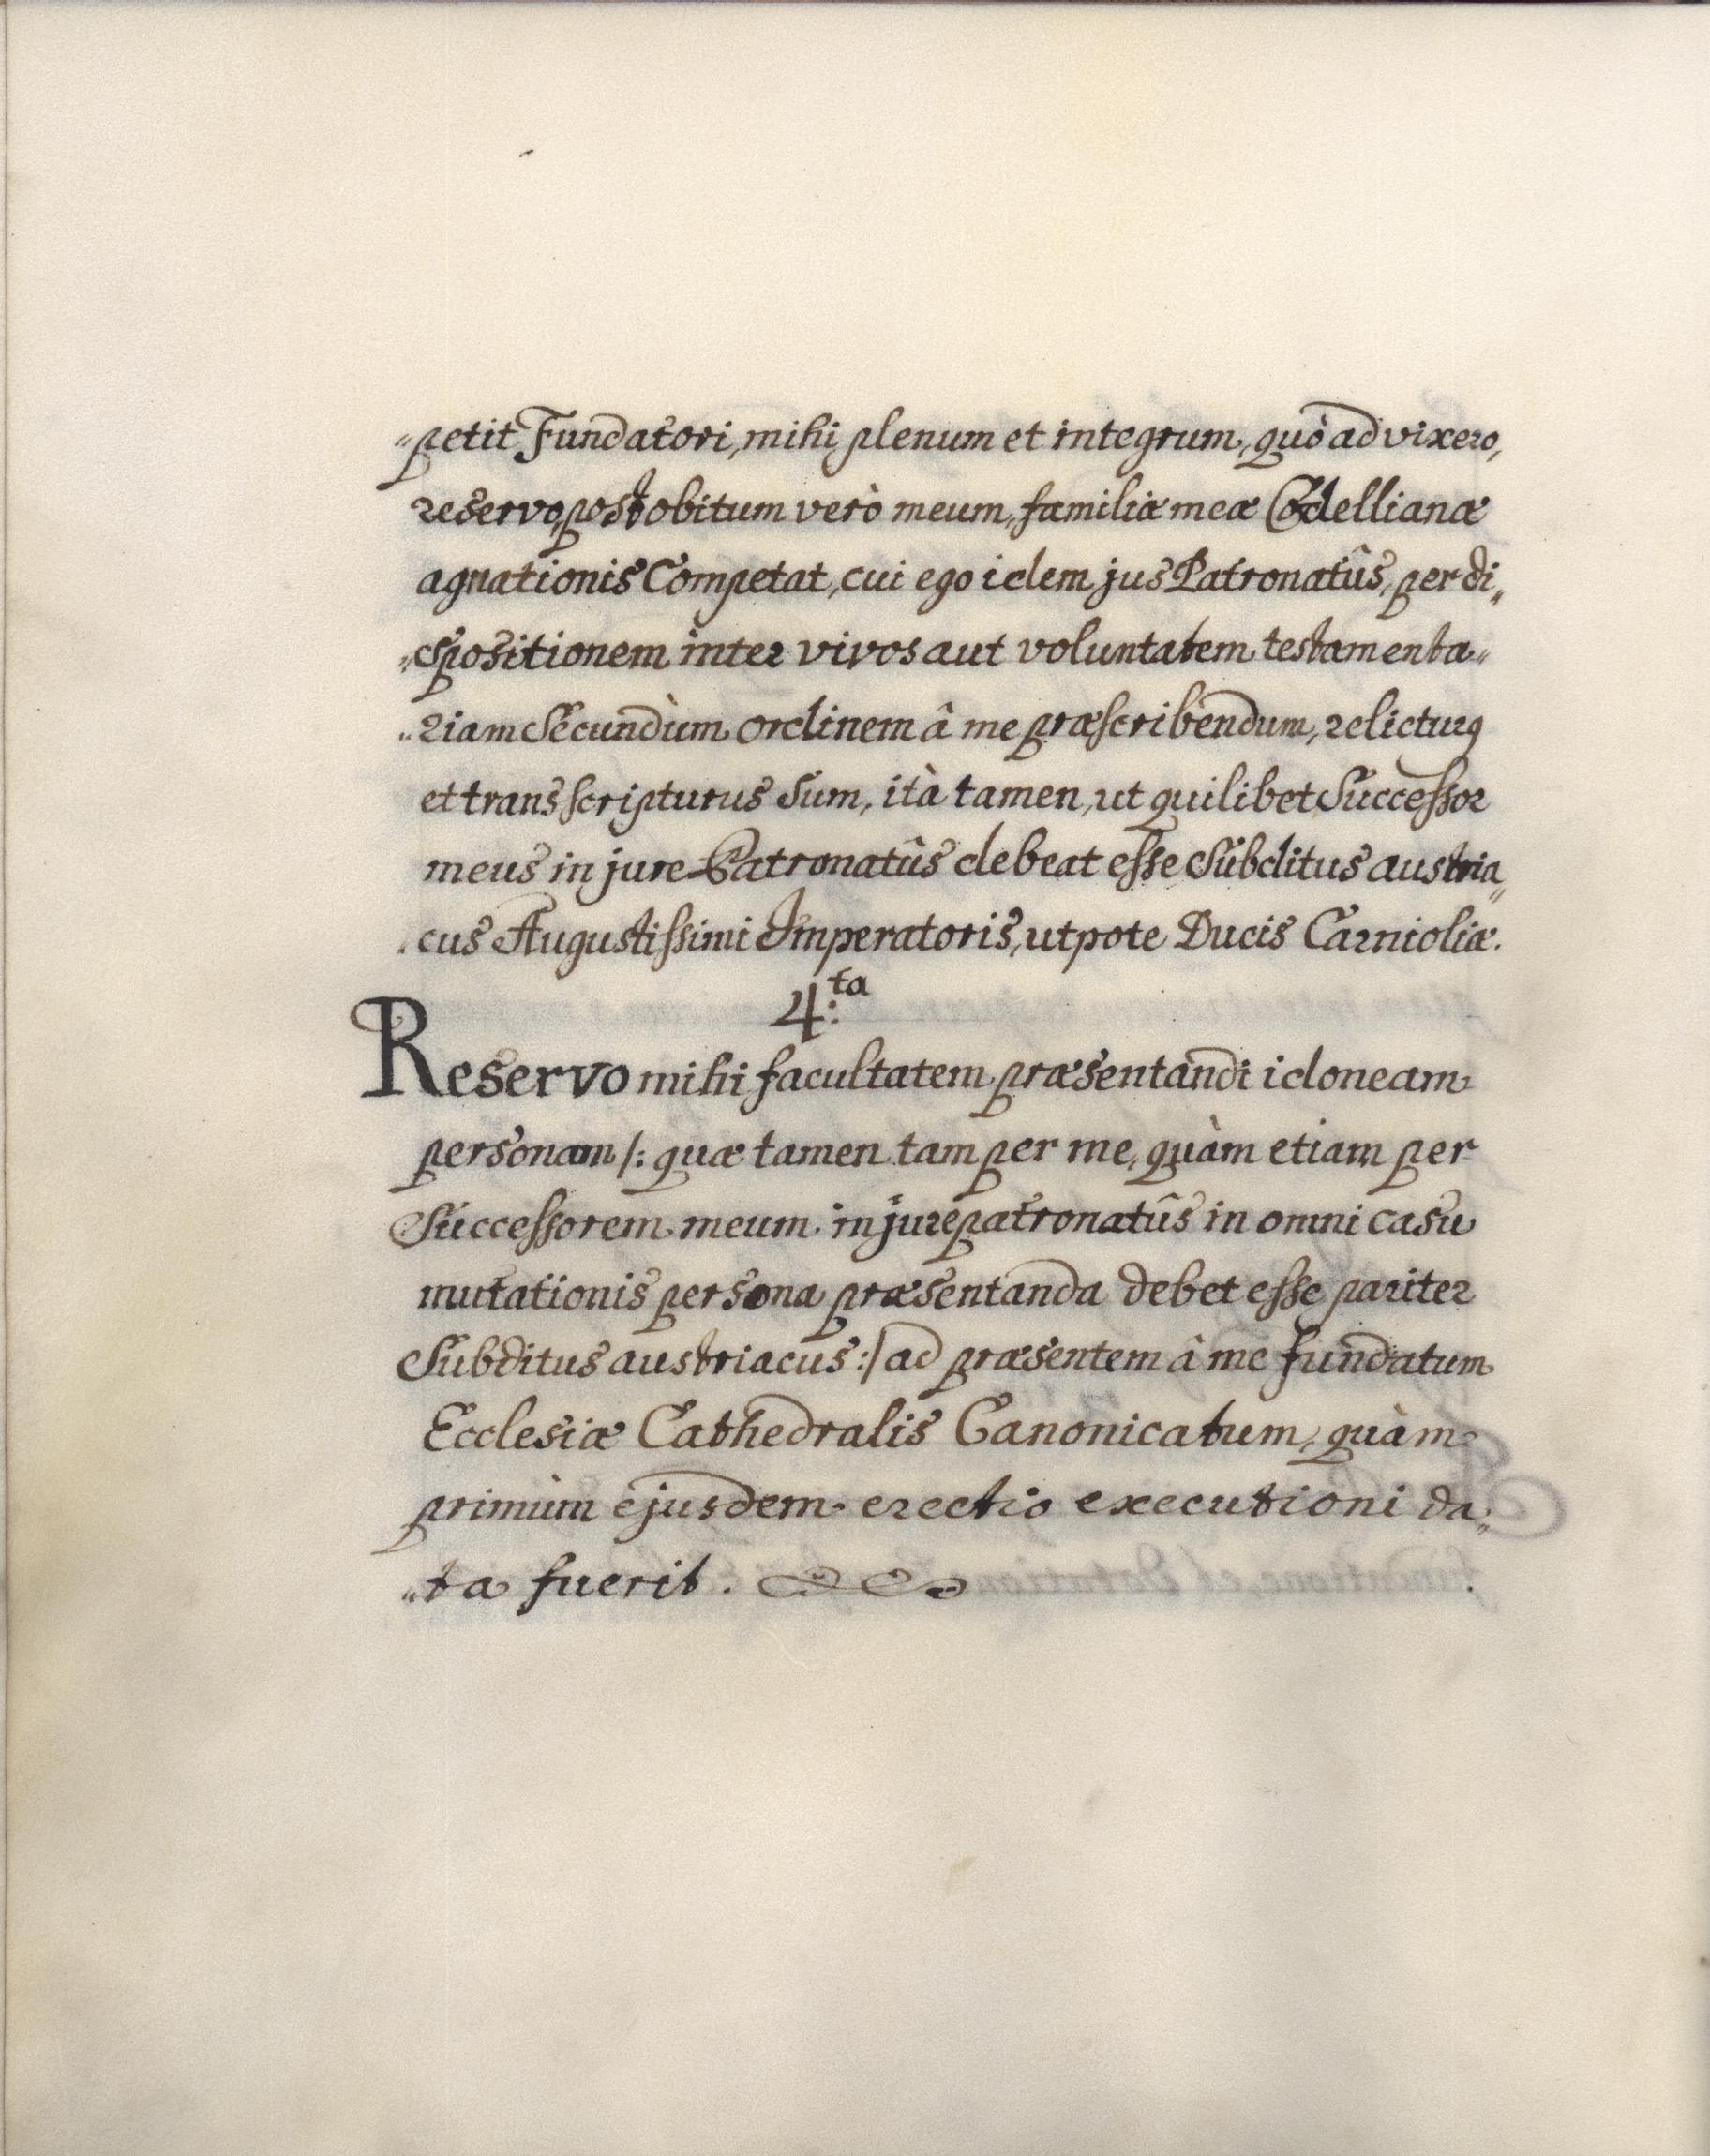 "petit Fundatori, mihi plenum et integrum, quò ad vixero,
reservo, post obitum verò meum, familiæ meæ Codellianæ
agnationis Competat, cui ego idem jus Patronatûs, per di„
„spositionem inter vivos aut voluntatem testamenta„
„riam Secundùm ordinem â me præscribendum, relicturus
et transscripturus Sum, ità tamen, ut quilibet Successor
meus in jure Patronatûs debeat esse Subditus austria„
„cus Augustissimi Imperatoris, utpote Ducis Carnioliæ.
4:ta
Reservo mihi facultatem præsentandi idoneam
personam /: quæ tamen tam per me, quàm etiam per
Successorem meum in jure patronatûs in omni casu
mutationis persona præsentanda debet esse pariter
Subditus austriacus :/ ad præsentem â me fundatum
Ecclesiæ Cathedralis Canonicatum, quàm
primùm ejusdem erectio executioni da„
„ta fuerit.